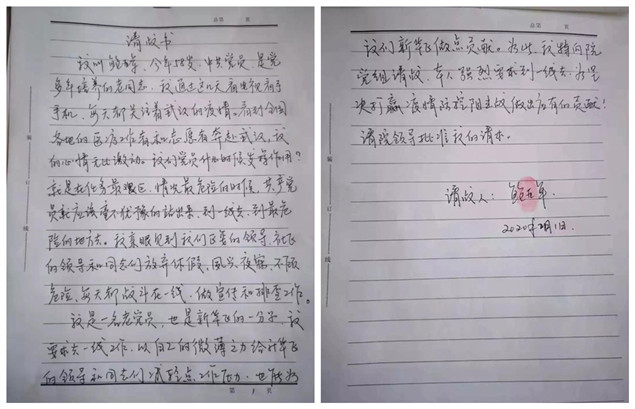 请战书
我叫
今年58岁，中共党员，是党
多年培养的老同志，我通过这几天看电视看手
手机，每天都关注着武汉的疫情。看到全国
各地的医疗工作者和志愿者奔赴武汉，我
的心情无比激动。我们党员什么时候发挥作用？
就是在任务最艰巨、情况最危险的时候，共产党
员就应该毫不犹豫的站出来，到一线去，到最危
险的地方去。我亲眼见到我们区里的领导，
的领导和同志们放弃休假，夙兴夜寐，不顾
危险，每天都战斗在一线，做宣传和排查工作。
我是一名老党员，也是新华
的一分子，我
要求去一线工作，以自己的微薄之力给新华
的领导和同志们减轻点工作压力，也能为
第 1 页
我们新华
做点贡献。为此，我特向院
党组请战，本人强烈要求到一线去，为坚
决打赢疫情防控阻击战做出应有的贡献！
请院领导批准我的请求。
请战人：
2020年2月1日